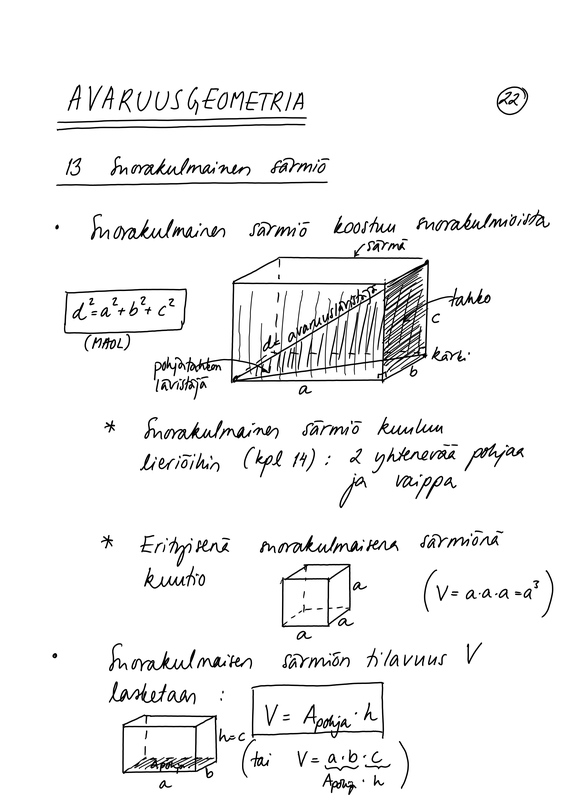 AVARUUSGEOMETRIA
22
13 Suorakulmainen särmiö
• Suorakulmainen särmiö koostuu suorakulmioista
särmä
d²=a²+b²+c²
(MAOL)
d = avaruuslävistäjä
tahko
c
pohjatahkon
lävistäjä
kärki
b
a
* Suorakulmainen särmiö kuuluu
lieriöihin (kpl 14) : 2 yhtenevää pohjaa
ja vaippa
* Erityisenä suorakulmaisena särmiönä
kuutio
a
a
a
(V = a·a·a = a³)
• Suorakulmaisen särmiön tilavuus V
lasketaan :
V = Apohja · h
h=c
Apohja
b
a
(tai V = a·b·c)
Apohja · h